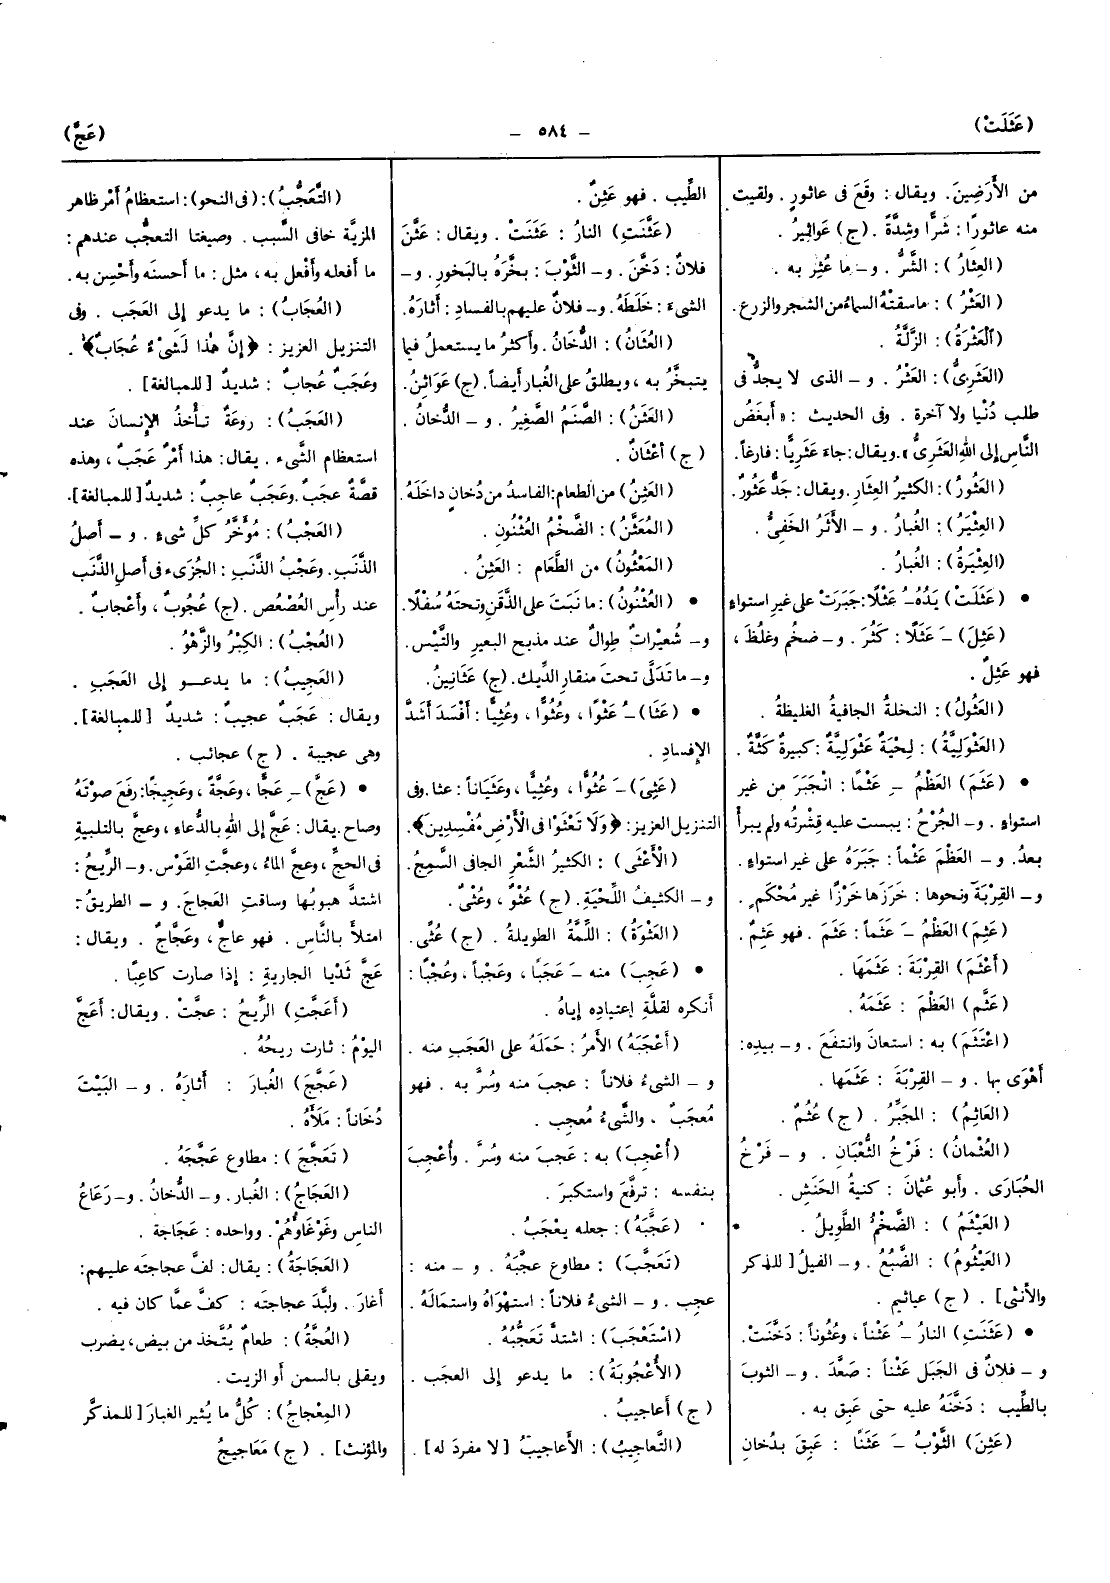 (عَثَلَتْ)
– ٥٨٤ –
(عَجَّ)
من الأَرَضِينَ. ويقال : وقَعَ فى عاثورٍ . ولقيت
منه عاثورًا : شرًّا وشِدَّةً . (ج) عَوَاثِيرُ .
(العِثارُ) : الشَّرُّ . و– ما عُثِر به .
(العَثْرُ) : ماسقتْهُ السماءُ من الشجر والزرع .
(العَثْرَةُ) : الزلَّةُ .
(العَثَرِىُّ) : العَثْرُ . و– الذى لا يجدُّ فى
طلب دُنْيا ولا آخرة . وفى الحديث : «أبغَضُ
النَّاس إلى اللهِ العَثَرِىُّ» . ويقال : جاءَ عَثَرِيًّا : فارغاً .
(العَثُورُ) : الكثيرُ العِثارِ . ويقال : جَدٌّ عَثُورٌ .
(العِثْيَرُ) : الغُبارُ . و– الأَثَرُ الخَفِىُّ .
(العِثْيَرَةُ) : الغُبارُ .
• (عَثَلَتْ) يَدُهُ–ُ عَثْلًا : جَبَرَتْ على غير استواءٍ
(عَثِلَ) –َ عَثَلًا : كَثُرَ . و– ضخُم وغلُظَ ،
فهو عَثِلٌ .
(العَثُولُ) : النخلةُ الجافيةُ الغليظةُ .
(العَثْوَلِيَّةُ) : لِحْيَةٌ عَثْوَلِيَّةٌ : كبيرةٌ كَثَّةٌ .
• (عَثَمَ) العَظْمُ –ِ عَثْمًا : انْجَبَرَ من غير
استواءٍ . و– الجُرْحُ : يبست عليه قِشْرتُه ولم يبرأْ
بعدُ . و– العَظْمَ عَثْماً : جَبَرَهُ على غير استواءٍ .
و– القِرْبَةَ ونحوها : خَرَزَها خَرْزًا غير مُحْكَمٍ .
(عَثِمَ) العَظْمُ –َ عَثَماً : عَثَمَ . فهو عَثِمٌ .
(أَعْثَمَ) القِرْبَةَ : عَثَمَهَا .
(عَثَّم) العَظْمَ : عَثَمَهُ .
(اعْتَثَمَ) به : استعانَ وانتفَعَ . و– بيدِه :
أَهْوَى بها . و– القِرْبَةَ : عَثَمَها .
(العَاثِمُ) : المجَبِّرُ . (ج) عُثُمٌ .
(العُثْمانُ) : فَرْخُ الثُّعْبَانِ . و– فَرْخُ
الحُبَارَى . وأبو عُثمَانَ : كنيةُ الحَنَشِ .
(العَيْثَمُ) : الضَّخْمُ الطَّوِيلُ .
(العَيْثُومُ) : الضَّبُعُ . و– الفيلُ [ للذكر
والأنثى] . (ج) عياثيم .
• (عَثَنَتِ) النارُ –ُ عَثْناً ، وعُثُوناً : دَخَّنَتْ .
و– فلانٌ فى الجَبَل عَثْناً : صَعَّدَ . و– الثوبَ
بالطِّيب : دَخَّنَهُ عليه حتى عَبِقَ به .
(عَثِنَ) الثَّوْبُ –َ عَثَنًا : عَبِقَ بدُخان
الطِّيب . فهو عَثِنٌ .
(عَثَّنَتِ) النارُ : عَثَنَتْ . ويقال : عَثَّنَ
فلانٌ : دَخَّنَ . و– الثَّوْبَ : بخَّرَهُ بالبَخور . و–
الشىءَ : خَلَطَهُ . و– فلانٌ عليهم بالفسادِ : أثارَهُ .
(العُثَانُ) : الدُّخانُ . وأكثرُ ما يستعملُ فيما
يتبخَّرُ به ، ويطلقُ على الغُبار أيضاً . (ج) عَوَاثنُ .
(العَثَنُ) : الصَّنمُ الصَّغِيرُ . و– الدُّخانُ .
(ج) أعْثَانٌ .
(العَثِنُ) من الطعام : الفاسدُ من دُخانٍ داخلَهُ .
(المُعَثَّنُ) : الضَّخْمُ العُثْنُونِ .
(المَعْثُونُ) من الطَّعَام : العَثِنُ .
• (العُثْنُونُ) : ما نَبَتَ على الذَّقَنِ وتحتَهُ سُفْلًا .
و– شُعيْراتٌ طِوالٌ عند مذبح البعير والتَّيْس .
و– ما تَدَلَّى تحتَ منقار الدِّيك . (ج) عَثَانِينُ .
• (عَثَا) –ُ عَثْوًا ، وعُثُوًّا ، وعُثِيًّا : أفْسَد أَشَدَّ
الإِفسادِ .
(عَثِىَ) –َ عُثُوًّا ، وعُثِيًّا ، وعَثَيَاناً : عثا . وفى
التنزيل العزيز : ﴿وَلَا تَعْثَوْا فى الأَرْضِ مُفْسِدِينَ﴾ .
(الأَعْثَى) : الكثيرُ الشَّعْرِ الجافى السَّمِجُ .
و– الكثيفُ اللِّحْيَةِ . (ج) عُثْوٌ ، وعُثْىٌ .
(العَثْوَةُ) : اللِّمَّةُ الطويلةُ . (ج) عُثًى .
• (عَجِبَ) منه –َ عَجَبًا ، وعَجْباً ، وعُجْبًا :
أنكره لقلَّةِ إعتياده إياهُ .
(أعْجَبَهُ) الأمرُ : حَمَلَهُ على العَجَبِ منه .
و– الشىءُ فلاناً : عجبَ منه وسُرَّ به . فهو
مُعجَبٌ ، والشَّىءُ مُعجِب .
(أُعْجِبَ) به : عَجبَ منه وسُرَّ . وأُعْجِبَ
بنفسه : ترفَّعَ واستكبرَ .
(عَجَّبَهُ) : جعله يعْجَبُ .
(تَعَجَّبَ) : مطاوع عجَّبَهُ . و– منه :
عجب . و– الشىءُ فلاناً : استهْوَاهُ واستمَالَهُ .
(اسْتَعْجَبَ) : اشتدَّ تَعَجُّبُهُ .
(الأُعْجُوبَةُ) : ما يدعو إلى العجَب .
(ج) أَعاجيبُ .
(التَّعاجِيبُ) : الأَعاجيبُ [لا مفردَ له] .
(التَّعَجُّبُ) : (فى النحو) : استعظامُ أمْرٍ ظاهرِ
المزيَّة خافى السَّبب . وصيغتا التعجُّب عندهم :
ما أفعله وأفْعل به ، مثل : ما أحسنَه وأحْسِن به .
(العُجَابُ) : ما يدعو إلى العَجَب . وفى
التنزيل العزيز : ﴿إنَّ هٰذا لَشَىْءٌ عُجَابٌ﴾ .
وعَجَبٌ عُجابٌ : شديدٌ [للمبالغة] .
(العَجَبُ) : روعَةٌ تأْخذُ الإِنسانَ عند
استعظام الشَّىءِ . يقال : هذا أمْرٌ عَجَبٌ ، وهذه
قصَّةٌ عجَبٌ . وعَجَبٌ عاجِبٌ : شديدٌ [للمبالغة] .
(العَجْبُ) : مُؤَخَّرُ كلِّ شىءٍ . و– أصلُ
الذَّنَبِ . وعَجْبُ الذَّنَبِ : الجُزىءُ فى أصلِ الذَّنَب
عند رأْسِ العُصْعُص . (ج) عُجُوبٌ ، وأعْجابٌ .
(العُجْبُ) : الكِبْرُ والزَّهْوُ .
(العَجِيبُ) : ما يدعو إلى العَجَبِ .
ويقال : عَجَبٌ عجيبٌ : شديدٌ [للمبالغة] .
وهى عجيبة . (ج) عجائب .
• (عَجَّ) –ِ عَجًّا ، وعَجَّةً ، وعَجِيجًا : رفَعَ صوْتَهُ
وصاح . يقال : عَجَّ إلى اللهِ بالدُّعاءِ ، وعجَّ بالتلبيةِ
فى الحجِّ ، وعجَّ الماءُ ، وعجَّتِ القَوْس . و– الرِّيحُ :
اشتدَّ هبوبُها وساقتِ العَجاجَ . و– الطريقُ :
امتلأَ بالنَّاس . فهو عاجٌّ ، وعَجَّاجٌ . ويقال :
عَجَّ ثَدْيا الجاريةِ : إذا صارت كاعِبًا .
(أَعَجَّتِ) الرِّيحُ : عجَّتْ . ويقال : أَعَجَّ
اليوْمُ : ثارت ريحُهُ .
(عَجَّجَ) الغُبارَ : أَثارَهُ . و– البَيْتَ
دُخَاناً : مَلَأَهُ .
(تَعَجَّجَ) : مطاوع عَجَّجَهُ .
(العَجَاجُ) : الغُبار . و– الدُّخانُ . و– رَعَاعُ
الناسِ وغَوْغاؤُهُمْ . وواحده : عَجَاجة .
(العَجَاجَةُ) : يقال : لفَّ عجاجتَه عليهم :
أغارَ . ولبَّدَ عجاجتَه : كفَّ عمَّا كان فيه .
(العُجَّةُ) : طعامٌ يُتَّخذ من بيض ، يضرب
ويقلى بالسمن أو الزيت .
(المِعْجاجُ) : كُلُّ ما يُثير الغبارَ [للمذكَّر
والمؤنث] . (ج) مَعَاجِيجُ